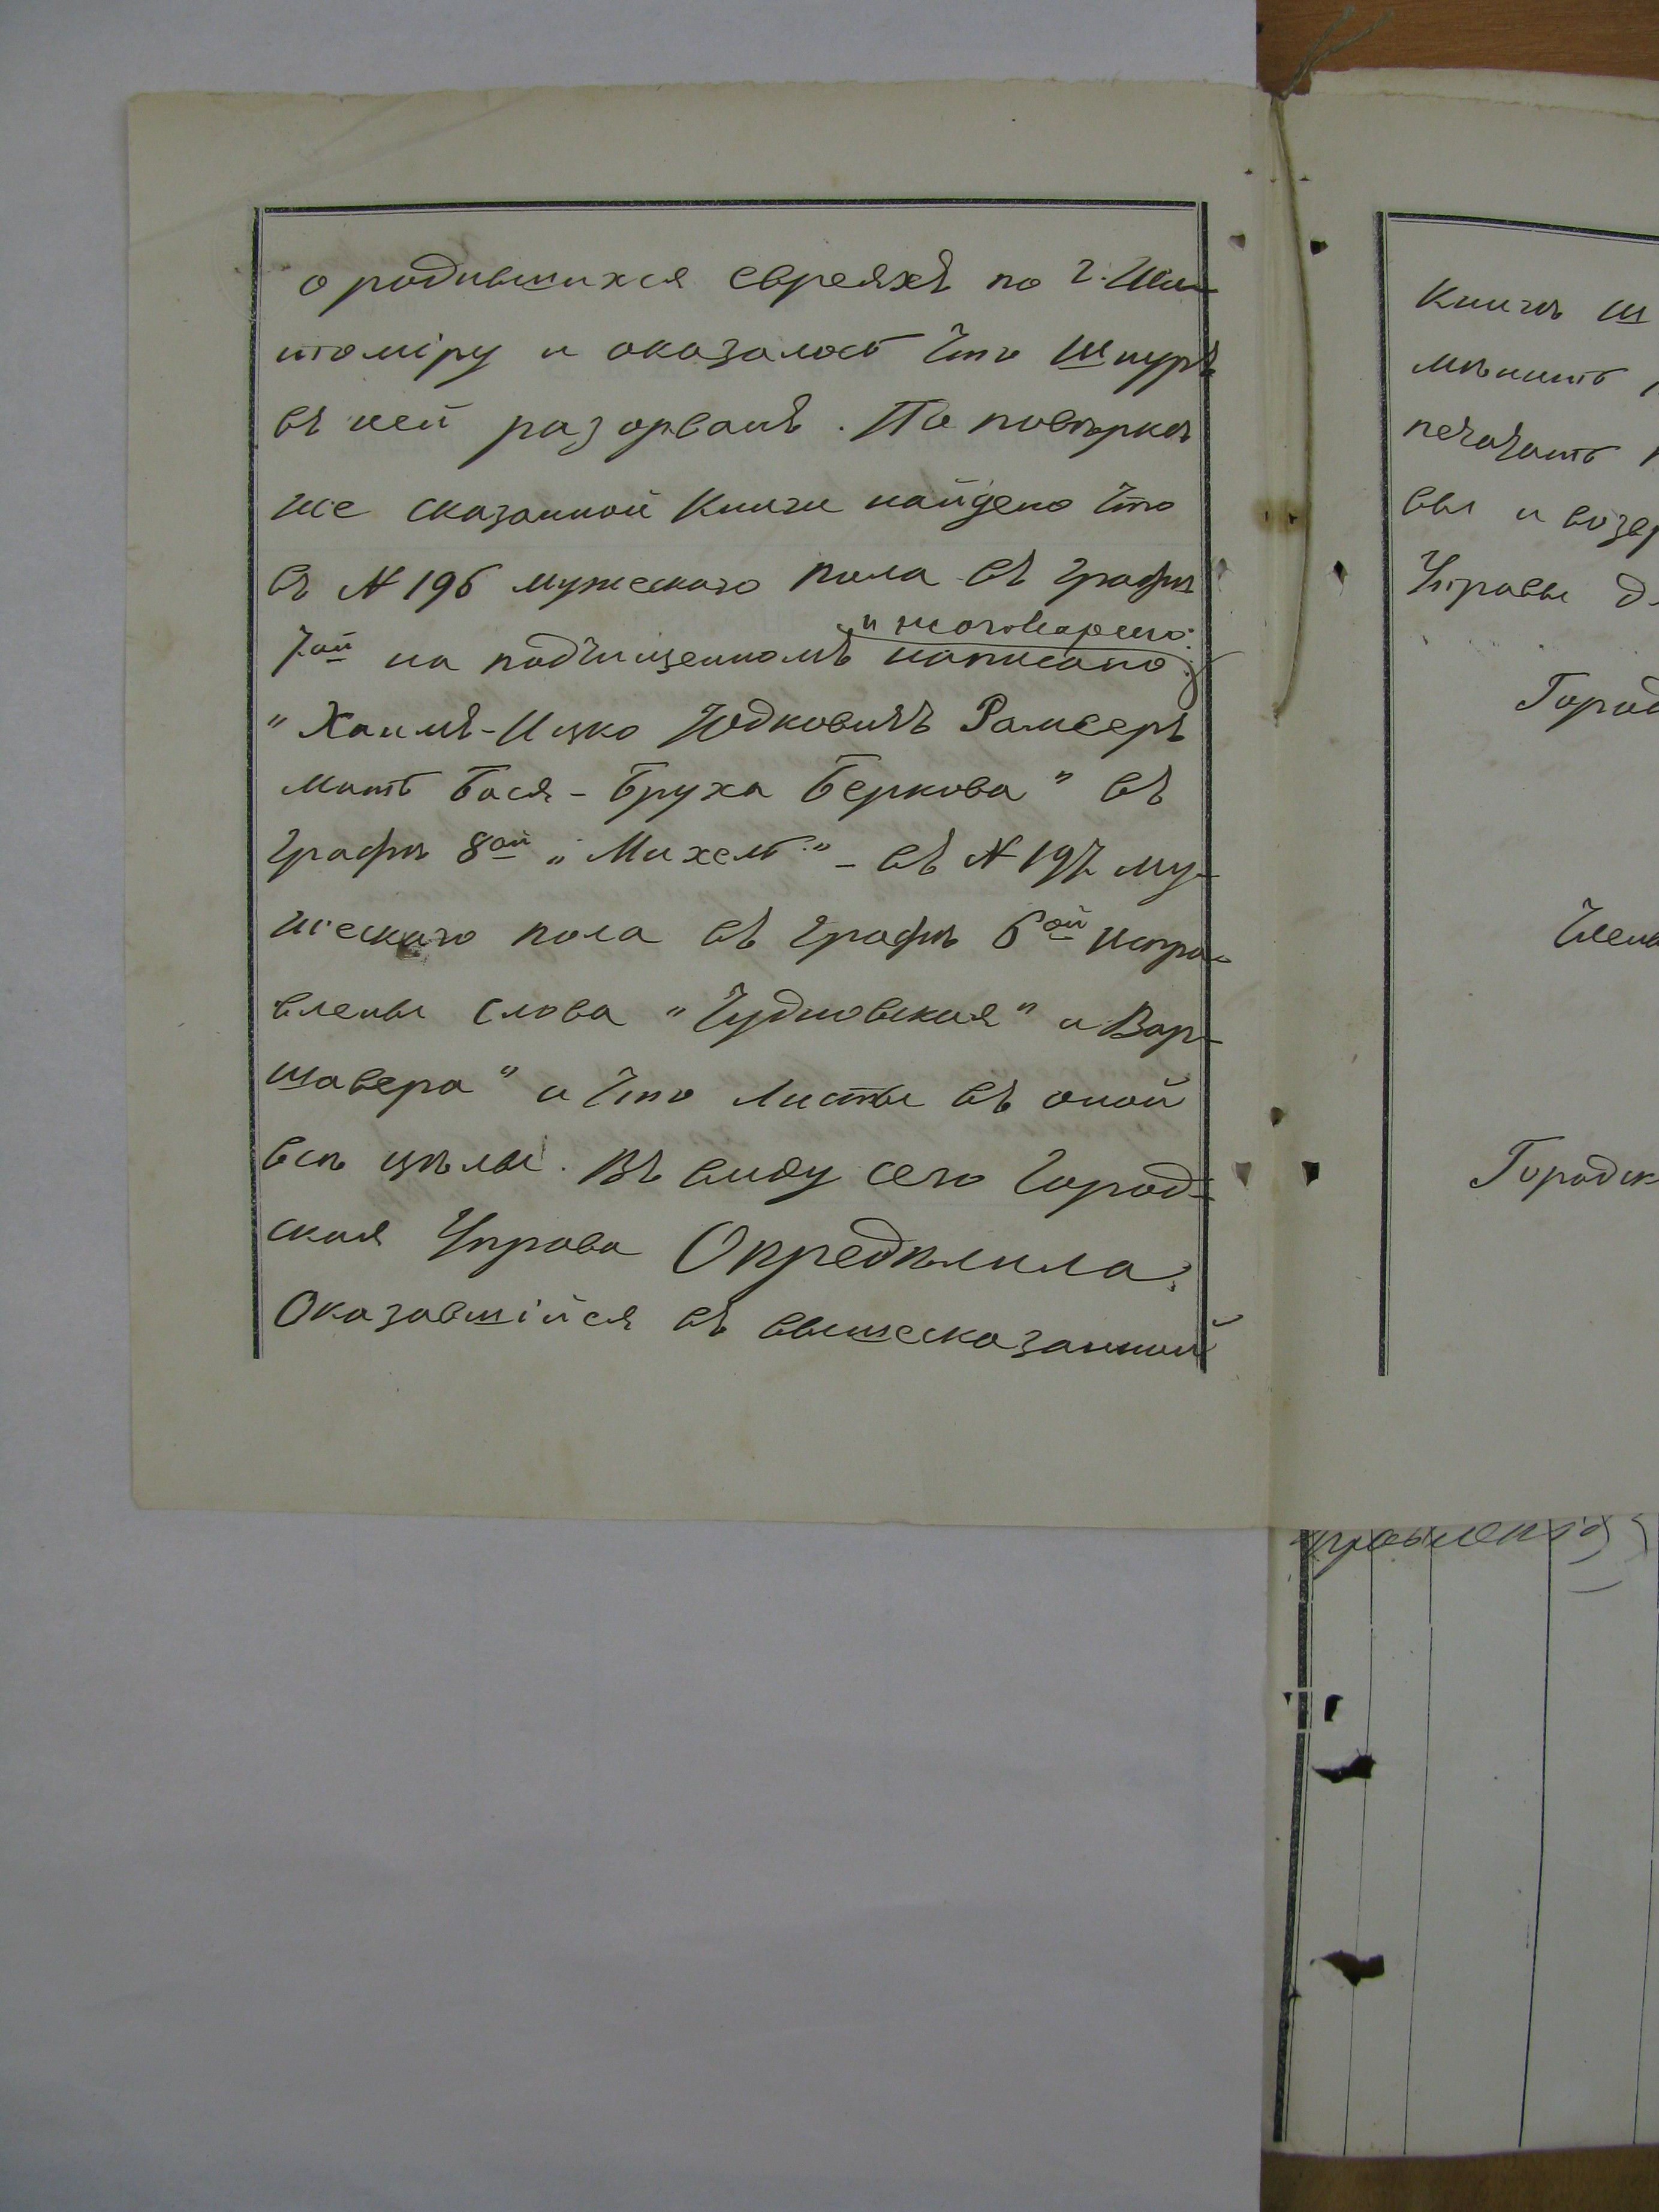 о родившихся евреяхъ по г. Жи-
томіру и оказалось что шнуръ
въ ней разорванъ. По повѣркѣ
же сказанной Книги найдено что
въ № 196 мужескаго пола въ графѣ
и неоговорено:
7ой на подчищенномъ написано:
"Хаимъ-Ицко Юдковичъ Рамсеръ
мать Бася-Бруха Беркова" въ
графѣ 8ой "Михель" - въ № 197 му-
жескаго пола въ графѣ 6ой испра-
влены слова "Чудновская" и Вар-
шавера" и что листы въ оной
всѣ цѣлы. Въ виду сего Город-
ская Управа Опредѣлила:
Оказавшійся въ вышесказанной
Книгѣ ш
мѣнить
печатать
вы и возвр
Управы д
Город
Члены
Городск